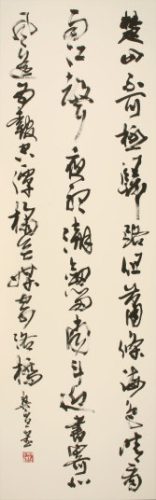 楚山不可極歸路但蕭條海色晴看
雨江聲夜聽潮劍留南斗近書寄北
風遙為報空潭橘無媒寄洛橋